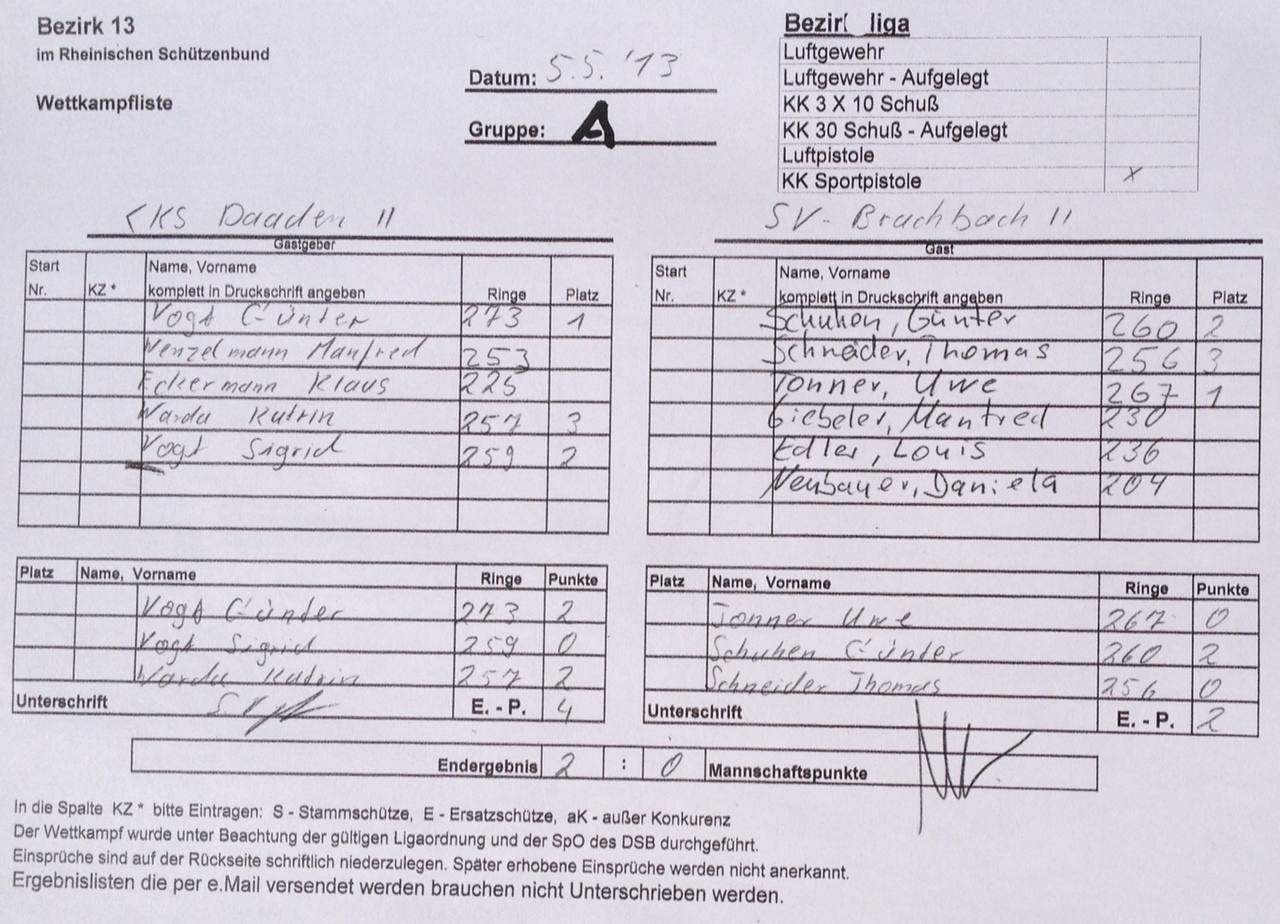 Bezirk 13
im Rheinischen Schützenbund
Wettkampfliste
Datum: 5.5.'13
Gruppe: A
Bezir liga
Luftgewehr
Luftgewehr - Aufgelegt
KK 3 X 10 Schuß
KK 30 Schuß - Aufgelegt
Luftpistole
KK Sportpistole x
KKS Daaden II
Gastgeber
Start Nr. KZ * Name, Vorname komplett in Druckschrift angeben Ringe Platz
Vogt Günter 273 1
Wenzelmann Manfred 253
Eckermann Klaus 225
Warda Katrin 257 3
Vogt Sigrid 259 2
SV- Brachbach II
Gast
Start Nr. KZ * Name, Vorname komplett in Druckschrift angeben Ringe Platz
Schuhen, Günter 260 2
Schneider, Thomas 256 3
Tonner, Uwe 267 1
Giebeler, Manfred 230
Edler, Louis 236
Neubauer, Daniela 204
Platz Name, Vorname Ringe Punkte
Vogt Günter 273 2
Vogt Sigrid 259 0
Warda Katrin 257 2
Unterschrift E. - P. 4
Platz Name, Vorname Ringe Punkte
Tonner Uwe 267 0
Schuhen Günter 260 2
Schneider Thomas 256 0
Unterschrift E. - P. 2
Endergebnis 2 : 0 Mannschaftspunkte
In die Spalte KZ * bitte Eintragen: S - Stammschütze, E - Ersatzschütze, aK - außer Konkurenz
Der Wettkampf wurde unter Beachtung der gültigen Ligaordnung und der SpO des DSB durchgeführt.
Einsprüche sind auf der Rückseite schriftlich niederzulegen. Später erhobene Einsprüche werden nicht anerkannt.
Ergebnislisten die per e.Mail versendet werden brauchen nicht Unterschrieben werden.